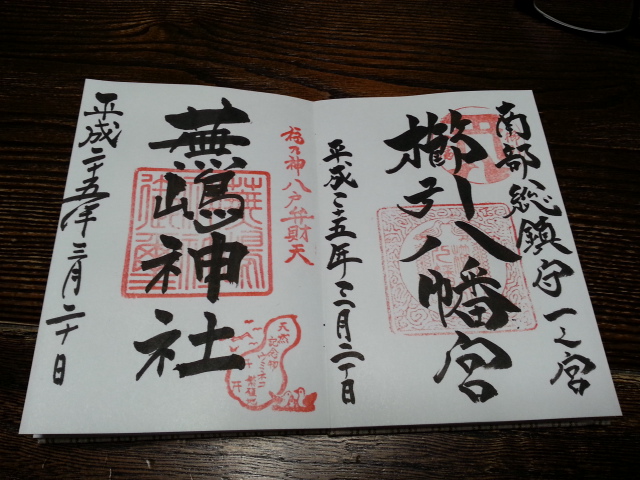 南部総鎮守一之宮
櫛引八幡宮
平成二十五年三月二十日
福乃神八戸弁財天
蕪嶋神社
平成二十五年三月二十日
天然
記念物
ウミネコ